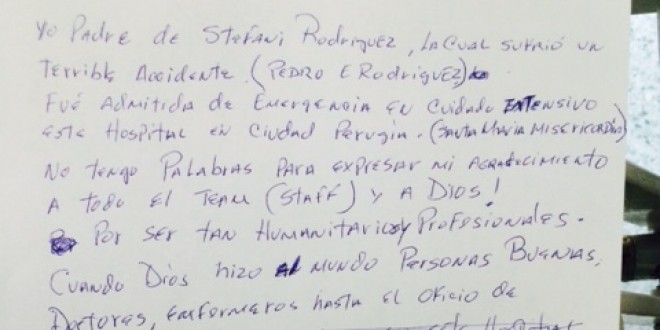 Yo Padre de Stefani Rodriguez, La cual sufrió un
Terrible Accidente. (Pedro E Rodriguez)
Fué Admitida de Emergencia en Cuidado Intensivo
este Hospital en Ciudad Perugia. (Santa Maria Misericordia)
No tengo Palabras para expresar mi Agradecimiento
A todo el Team (Staff) y a Dios!
Por ser tan Humanitarios y Profesionales.
Cuando Dios hizo al mundo Personas Buenas,
Doctores, Emformeros hasta el Oficio de
este Hospital